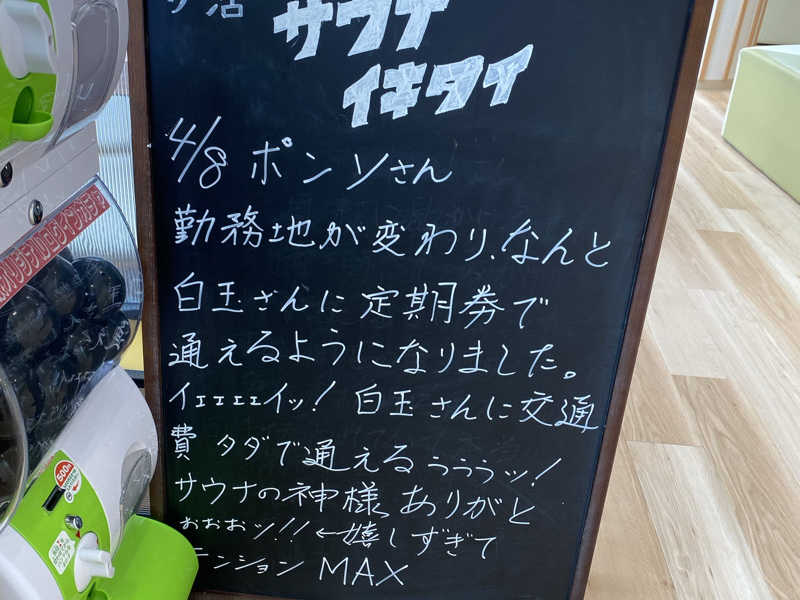 サ活
サウナ
イキタイ
4/8 ポンソさん
勤務地が変わり、なんと
白玉さんに定期券で
通えるようになりました。
イェェェェイッ! 白玉さんに交通
費タダで通えるぅぅぅッ!
サウナの神様ありがと
ぉぉぉッ!! ←嬉しすぎて
テンション MAX
500円